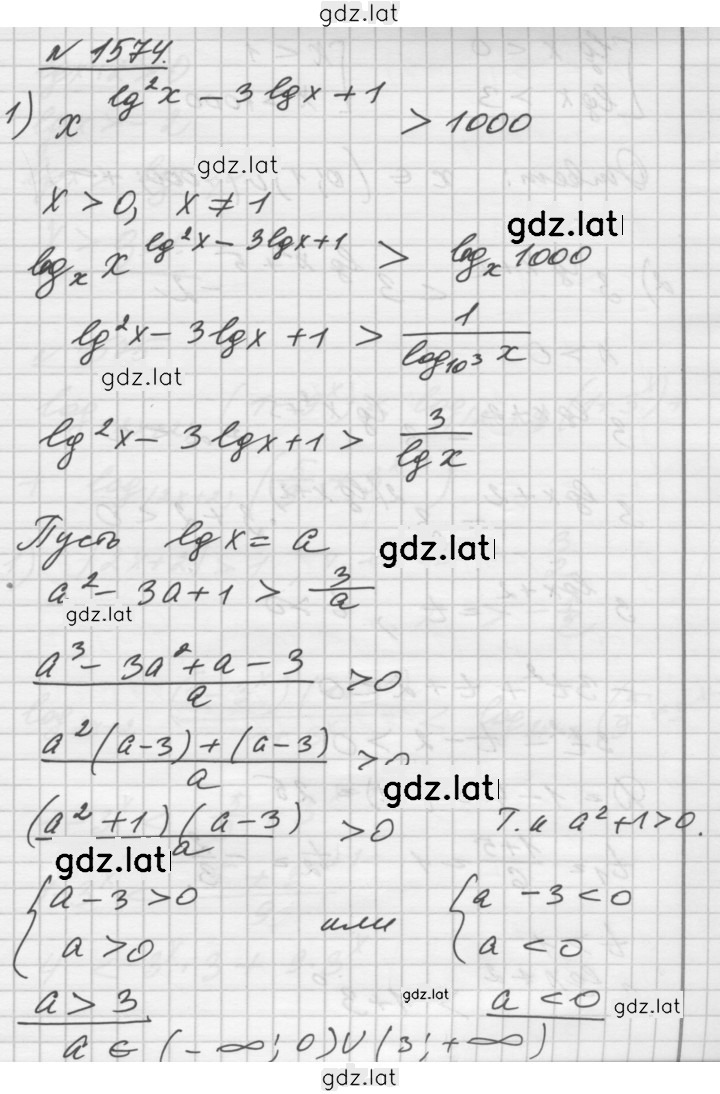 gdz.lat
N 1574.
1) x^(lg²x − 3lgx + 1) > 1000
gdz.lat
x > 0, x ≠ 1
gdz.lat
log_x x^(lg²x − 3lgx + 1) > log_x 1000
lg²x − 3lgx + 1 > 1/(log_(10³) x)
gdz.lat
lg²x − 3lgx + 1 > 3/(lgx)
Пусть lgx = a
gdz.lat
a² − 3a + 1 > 3/a
gdz.lat
(a³ − 3a² + a − 3)/a > 0
(a²(a−3) + (a−3))/a > 0
gdz.lat
((a² + 1)(a − 3))/a > 0 Т.к a² + 1 > 0.
gdz.lat
{ a − 3 > 0 или { a − 3 < 0
a > 0 a < 0
gdz.lat
a > 3 a < 0
gdz.lat
a ∈ (−∞; 0) ∪ (3; +∞)
gdz.lat